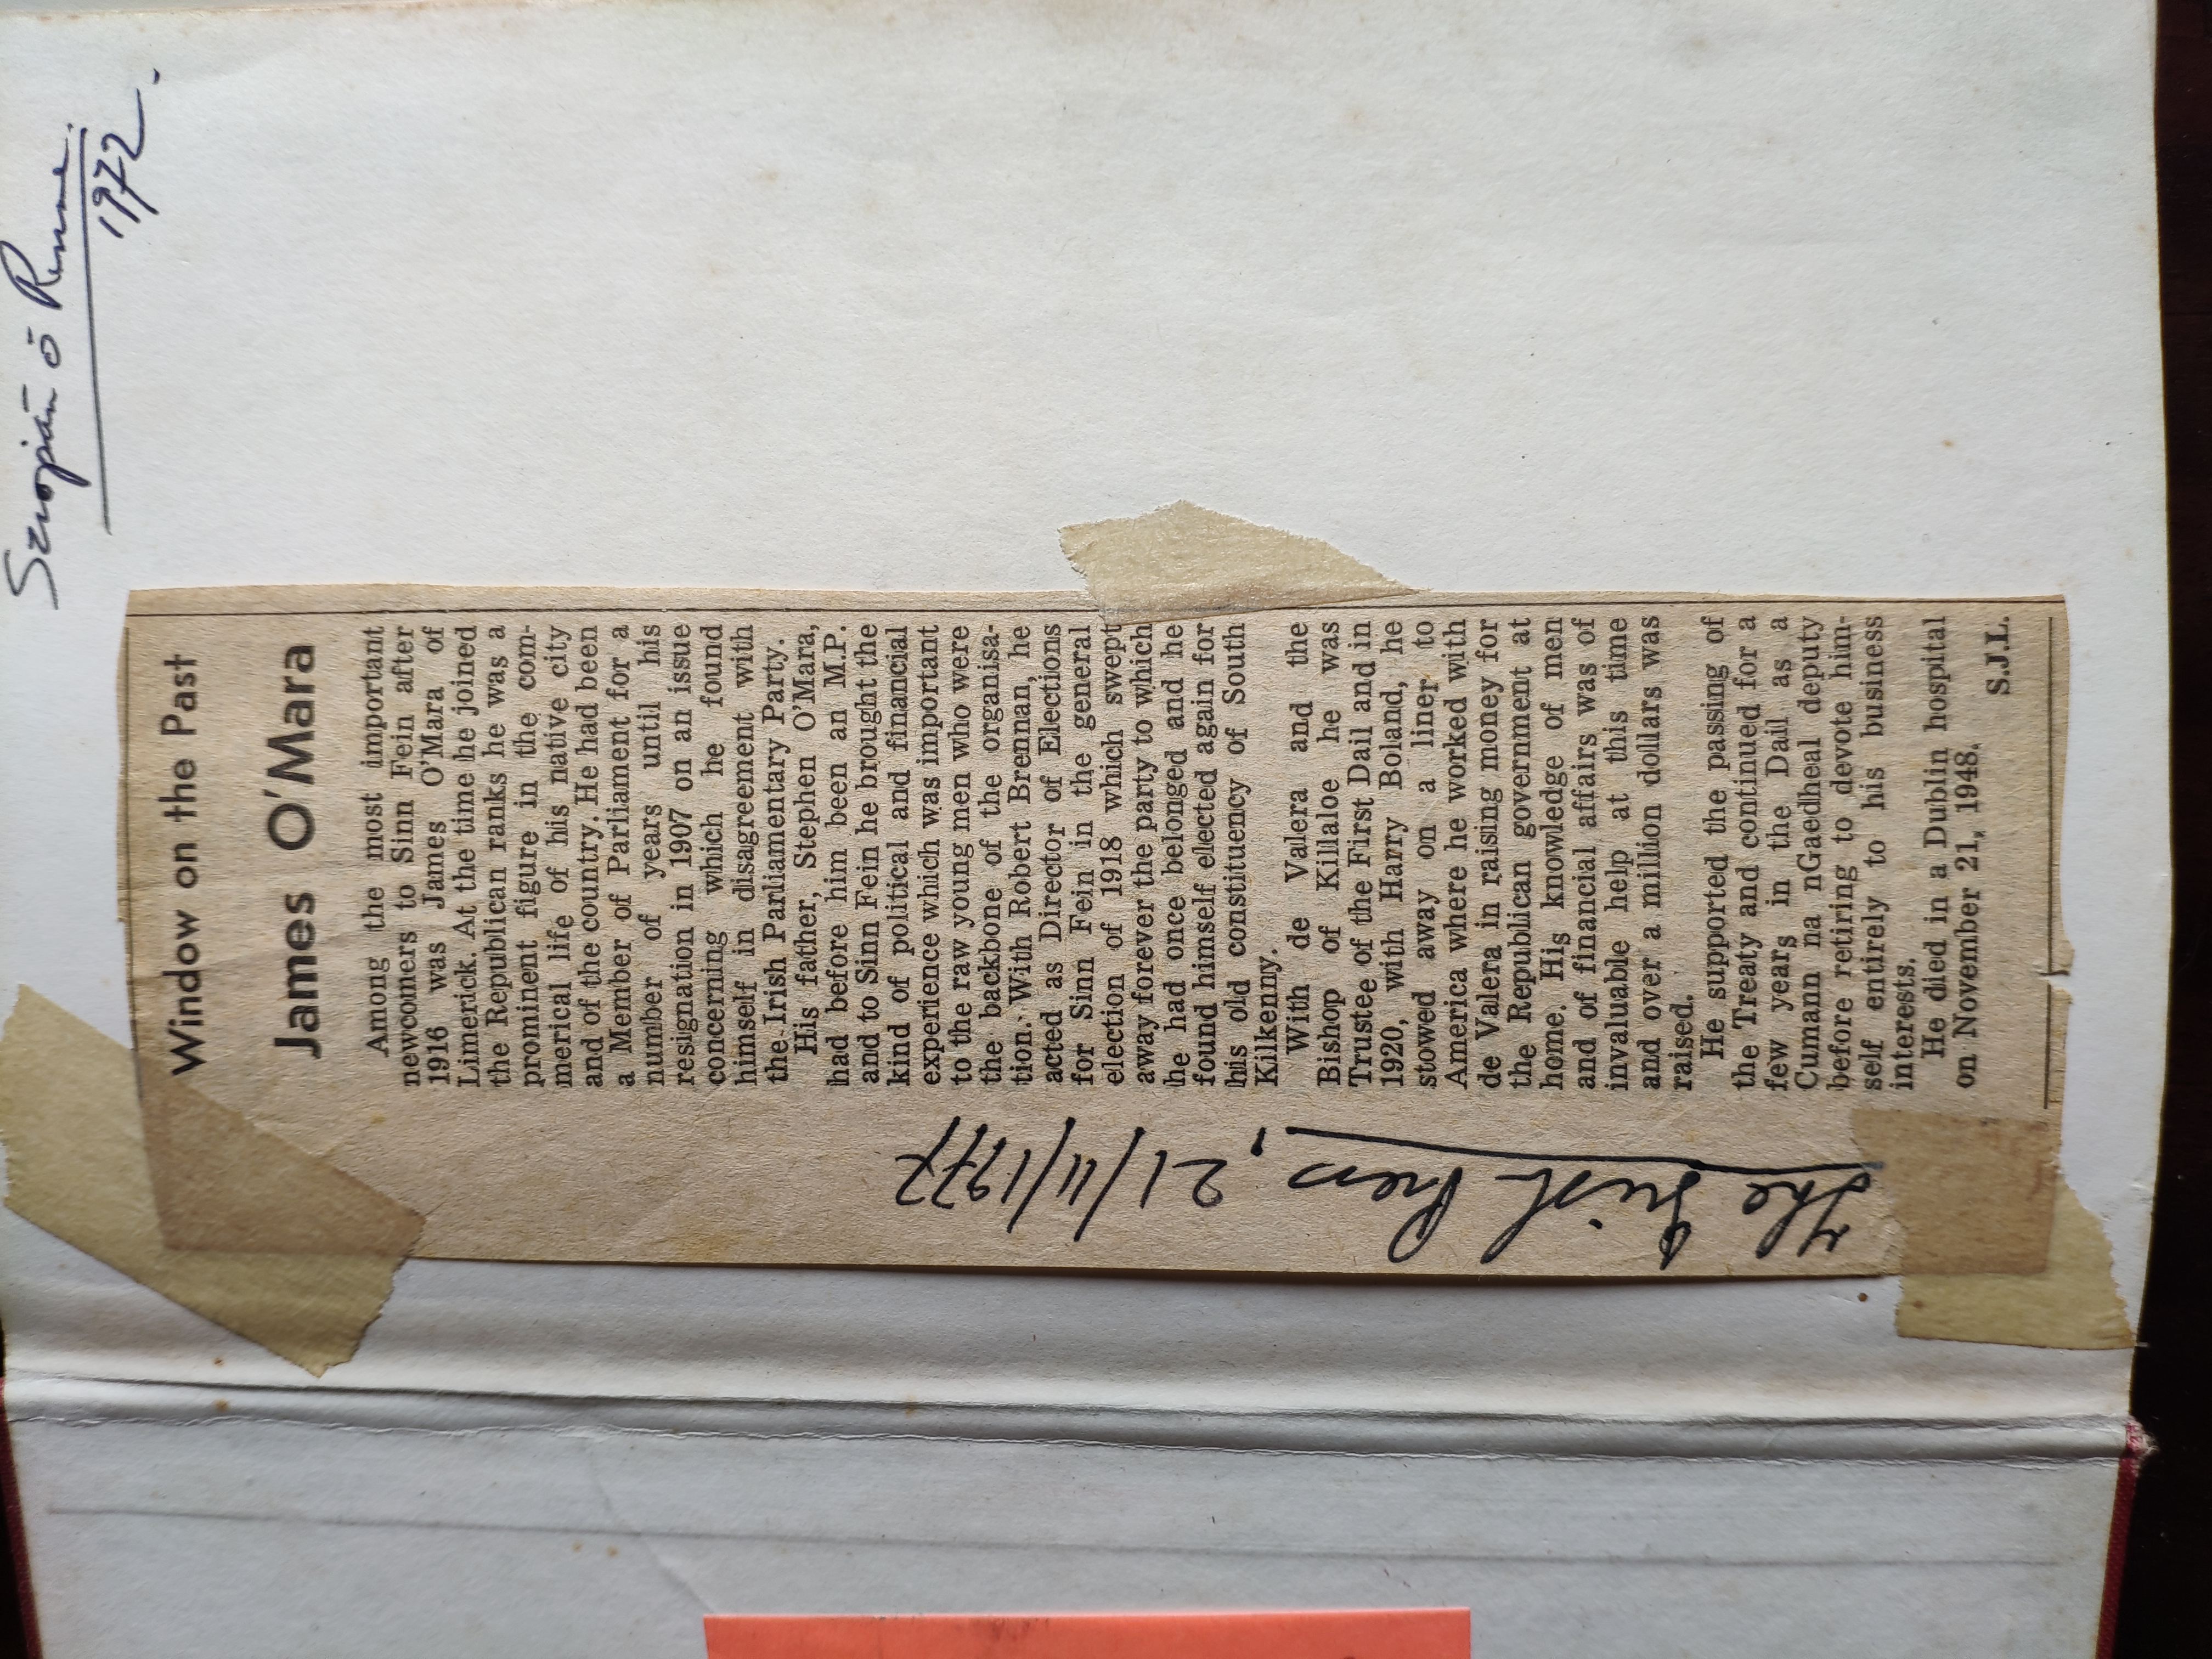 1972.
Window on the Past
James O'Mara
Among the most important
newcomers to Sinn Fein after
1916 was James O'Mara of
Limerick. At the time he joined
the Republican ranks he was a
prominent figure in the com-
merical life of his native city
and of the country. He had been
a Member of Parliament for a
number of years until his
resignation in 1907 on an issue
concerning which he found
himself in disagreement with
the Irish Parliamentary Party.
His father, Stephen O'Mara,
had before him been an M.P.
and to Sinn Fein he brought the
kind of political and financial
experience which was important
to the raw young men who were
the backbone of the organisa-
tion. With Robert Brennan, he
acted as Director of Elections
for Sinn Fein in the general
election of 1918 which swept
away forever the party to which
he had once belonged and he
found himself elected again for
his old constituency of South
Kilkenny.
With de Valera and the
Bishop of Killaloe he was
Trustee of the First Dail and in
1920, with Harry Boland, he
stowed away on a liner to
America where he worked with
de Valera in raising money for
the Republican government at
home. His knowledge of men
and of financial affairs was of
invaluable help at this time
and over a million dollars was
raised.
He supported the passing of
the Treaty and continued for a
few years in the Dail as a
Cumann na nGaedheal deputy
before retiring to devote him-
self entirely to his business
interests.
He died in a Dublin hospital
on November 21, 1948.
S.J.L.
The Irish Press, 21/11/1972